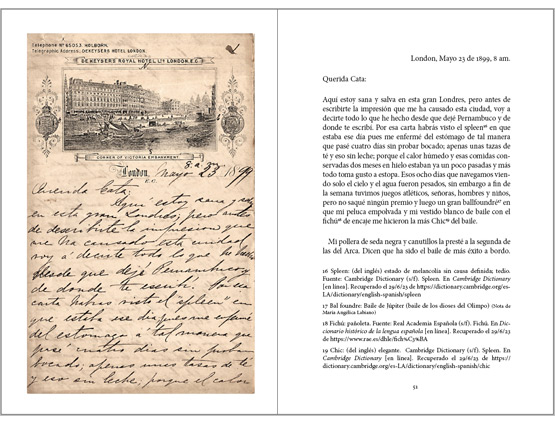 Telephone Nº 65053 HOLBORN.
Telegraphic Address, DEKEYSERS HOTEL LONDON.
DE KEYSERS ROYAL HOTEL LTD LONDON. E.C.
CORNER OF VICTORIA EMBANKMENT.
London, Mayo 23 1899
E.C.
Querida Cata:
Aquí estoy sana y
en esta gran Londres, pero antes
de describirte la impresión que
me ha causado esta ciudad
voy a decirte todo lo que he hecho
desde que dejé Pernambuco y
de donde te escribí. Por esa
carta habrás visto el "spleen" en
que estaba ese día pues me enfermé
del estómago de tal manera que
pasé cuatro días sin probar
bocado, apenas unas tazas de té
y eso sin leche, porque el calor
London, Mayo 23 de 1899, 8 am.
Querida Cata:
Aquí estoy sana y salva en esta gran Londres, pero antes de
escribirte la impresión que me ha causado esta ciudad, voy a
decirte todo lo que he hecho desde que dejé Pernambuco y de
donde te escribí. Por esa carta habrás visto el spleen16 en que
estaba ese día pues me enfermé del estómago de tal manera
que pasé cuatro días sin probar bocado; apenas unas tazas de
té y eso sin leche; porque el calor húmedo y esas comidas con-
servadas dos meses en hielo estaban ya un poco pasadas y más
todo toma gusto a estopa. Esos ocho días que navegamos vien-
do solo el cielo y el agua fueron pesados, sin embargo a fin de
la semana tuvimos juegos atléticos, señoras, hombres y niños,
pero no saqué ningún premio y luego un gran ballfoundré17 en
que mi peluca empolvada y mi vestido blanco de baile con el
fichú18 de encaje me hicieron la más Chic19 del baile.
Mi pollera de seda negra y canutillos la presté a la segunda de
las del Arca. Dicen que ha sido el baile de más éxito a bordo.
16 Spleen: (del inglés) estado de melancolía sin causa definida; tedio.
Fuente: Cambridge Dictionary (s/f). Spleen. En Cambridge Dictionary
[en línea]. Recuperado el 29/6/23 de https://dictionary.cambridge.org/es-
LA/dictionary/english-spanish/spleen
17 Bal foundre: Baile de Júpiter (baile de los dioses del Olimpo) (Nota de
María Angélica Labiano)
18 Fichú: pañoleta. Fuente: Real Academia Española (s/f). Fichú. En Dic-
cionario histórico de la lengua española [en línea]. Recuperado el 29/6/23
de https://www.rae.es/dhle/fich%C3%BA
19 Chic: (del inglés) elegante. Cambridge Dictionary (s/f). Spleen. En
Cambridge Dictionary [en línea]. Recuperado el 29/6/23 de https://
dictionary.cambridge.org/es-LA/dictionary/english-spanish/chic
51